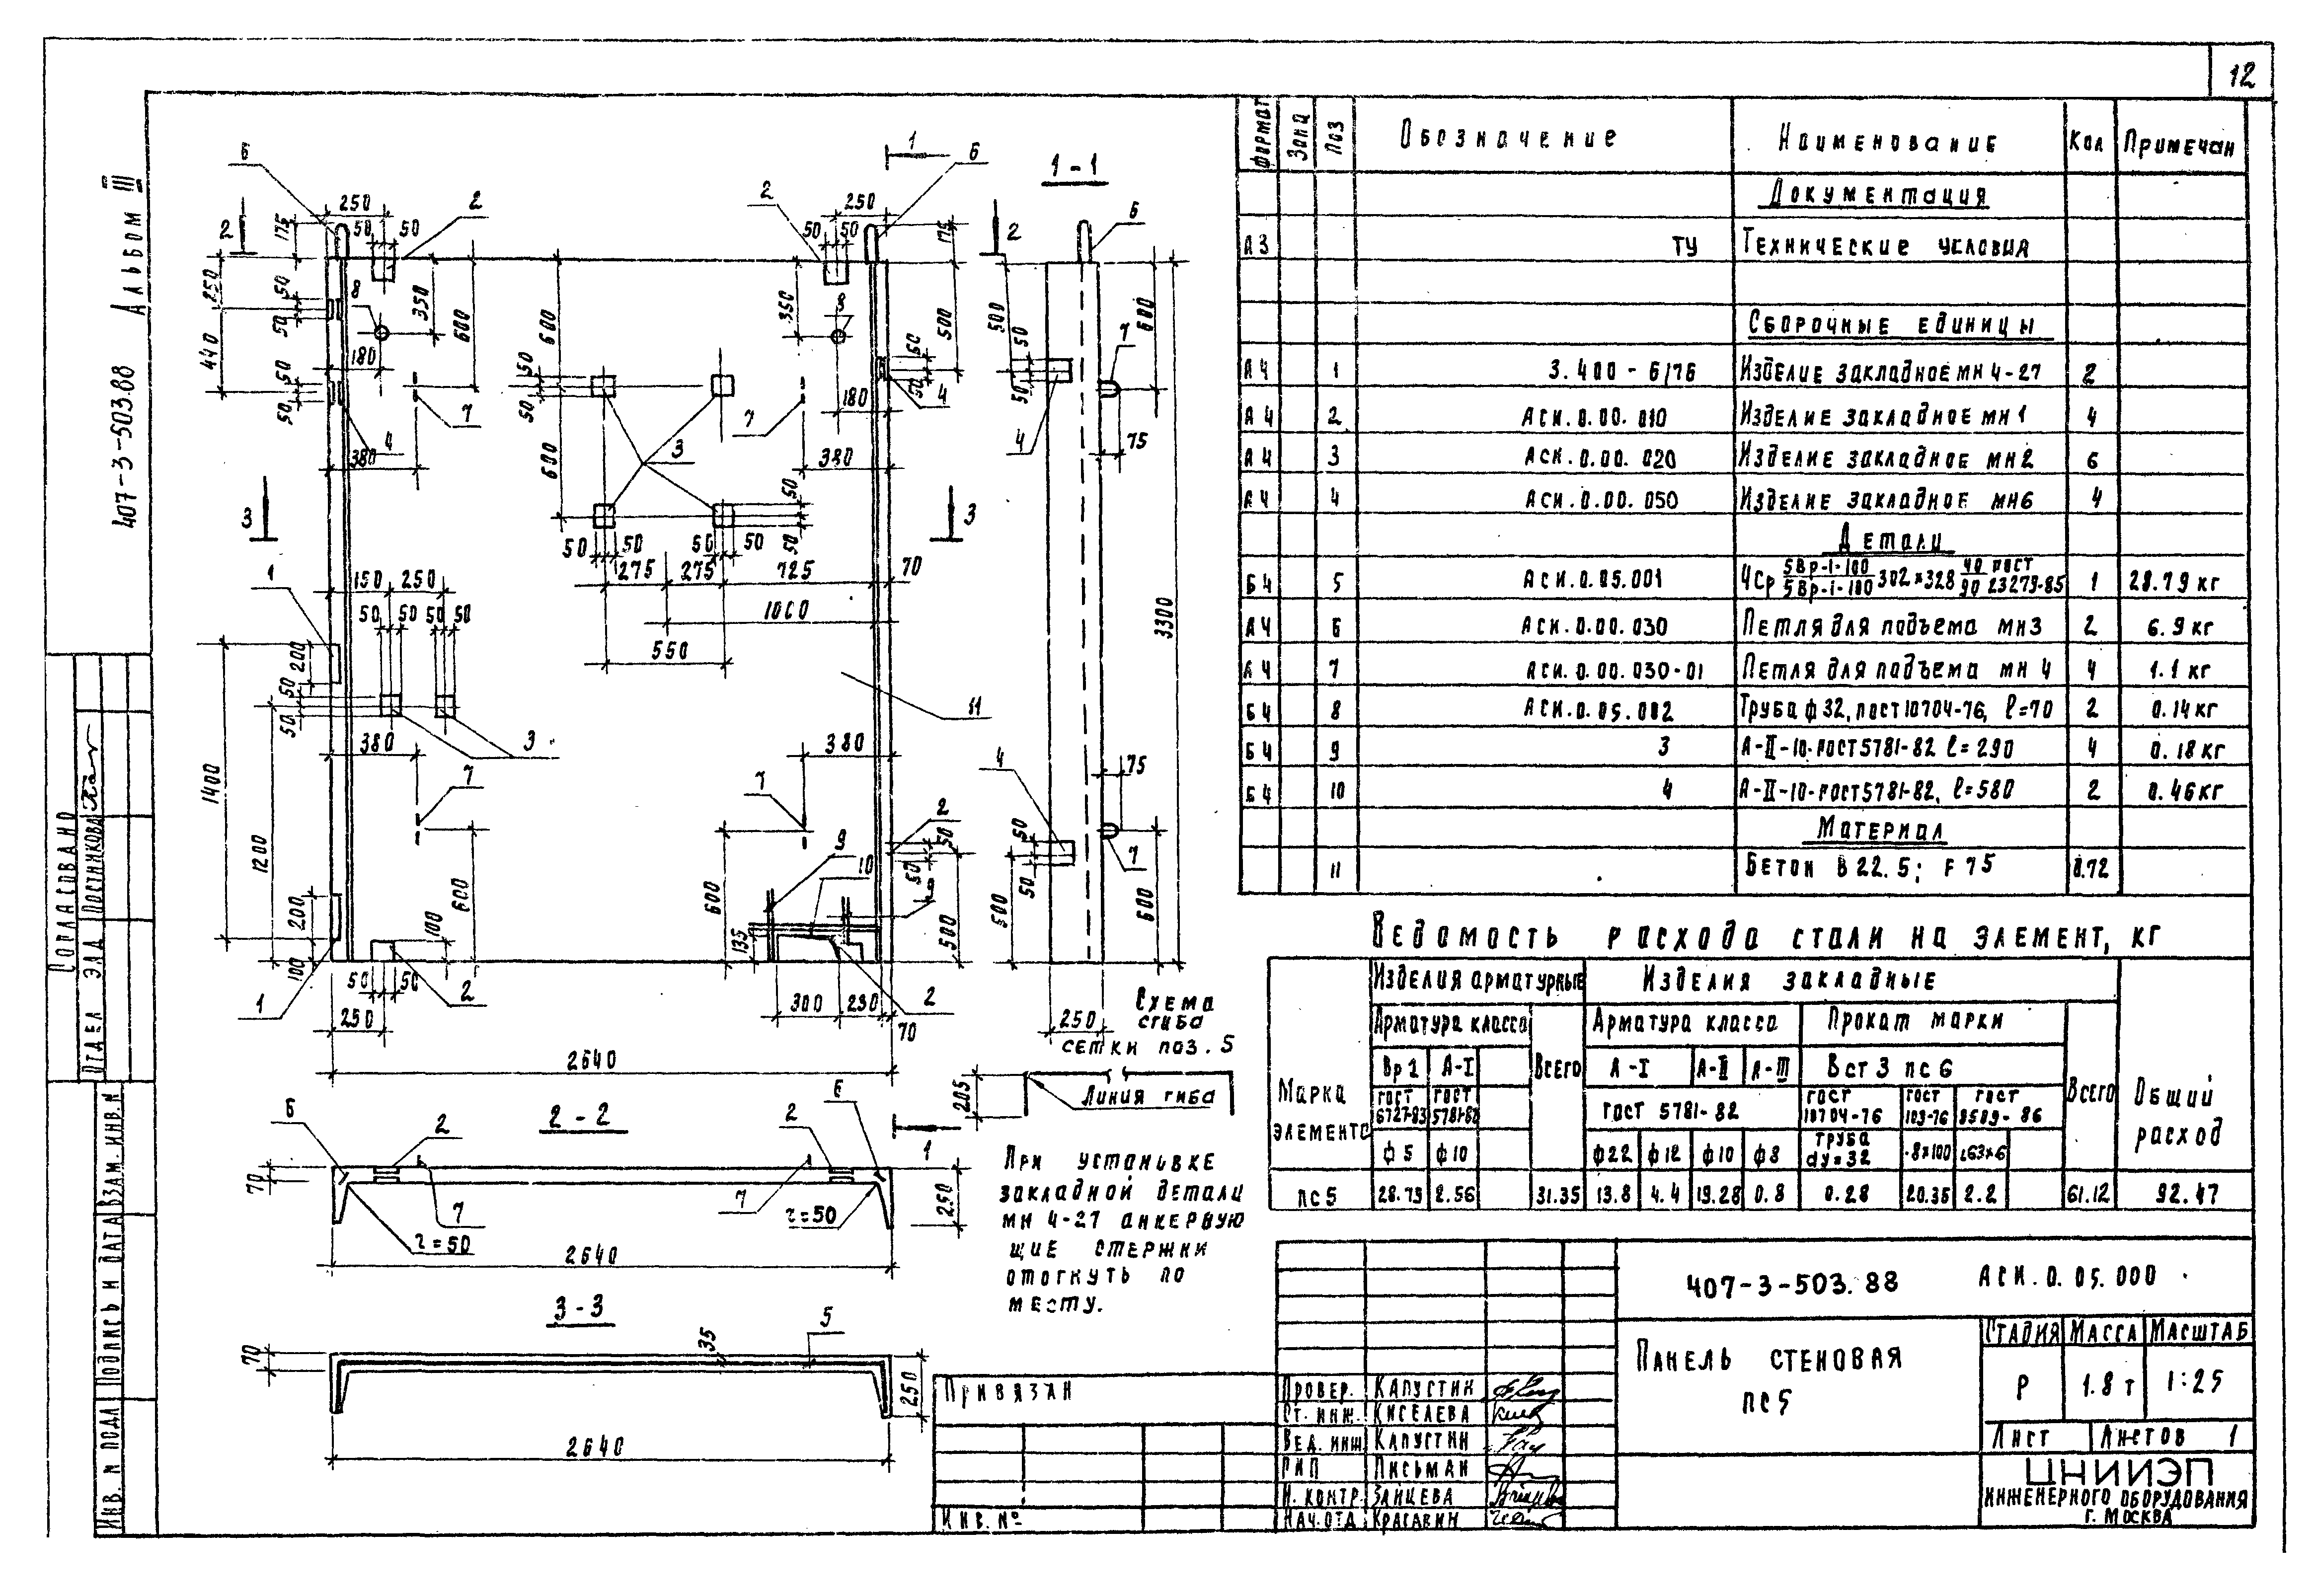 12
407-3-503.88 Альбом III
Согласовано
Отдел ЭЛД Постникова
Инв. № подл Подпись и дата Взам. инв. №
1-1
2-2
3-3
6
250
2
175
50
50
8
350
600
250
440
180
7
4
380
3
1
150
250
1400
1200
200
100
2640
550
1000
725
70
275
275
11
9
10
135
300
230
500
75
3300
Схема
сгиба
сетки поз. 5
Линия гиба
205
r=50
r=50
35
5
При установке
закладной детали
мн 4-27 анкерную
щие стержни
отогнуть по
месту.
Формат Зона Поз Обозначение Наименование Кол Примечан
Документация
А3 ТУ Технические условия
Сборочные единицы
А4 1 3.400-6/76 Изделие закладное мн 4-27 2
А4 2 АСИ.0.00.010 Изделие закладное мн 1 4
А4 3 АСИ.0.00.020 Изделие закладное мн2 6
А4 4 АСИ.0.00.050 Изделие закладное мн6 4
Детали
Б4 5 АСИ.0.05.001 4Ср 5Вр-I-100/5Вр-I-100 302×328 40/90 гост 23279-85 1 28.79 кг
А4 6 АСИ.0.00.030 Петля для подъема мн3 2 6.9 кг
Б4 7 АСИ.0.00.030-01 Петля для подъема мн 4 4 1.1 кг
Б4 8 АСИ.0.05.002 Труба ф 32, гост 10704-76, ℓ=70 2 0.14кг
Б4 9 3 А-II-10-гост 5781-82 ℓ=290 4 0.18 кг
Б4 10 4 А-II-10-гост 5781-82, ℓ=580 2 0.46 кг
Материал
11 Бетон В 22.5; F 75 0.72
Ведомость расхода стали на элемент, кг
Марка элемента
Изделия арматурные Изделия закладные
Арматура класса Всего Арматура класса Прокат марки Всего Общий расход
Вр1 А-I А-I А-II А-III Вст 3 пс 6
гост 6727-83 гост 5781-82 гост 5781-82 гост 10704-76 гост 103-76 гост 8509-86
ф5 ф10 ф22 ф12 ф10 ф8 труба dy=32 -8×100 L63×6
пс 5 28.79 2.56 31.35 13.8 4.4 19.28 0.8 0.28 20.35 2.2 61.12 92.47
407-3-503.88 АСИ.0.05.000
Панель стеновая
пс 5
Стадия Масса Масштаб
Р 1.8 т 1:25
Лист Листов 1
ЦНИИЭП
инженерного оборудования
г. Москва
Провер. Капустин
Ст. инж. Киселева
Вед. инж Капустин
ГИП Письман
Н. контр. Зайцева
Нач. отд Красавин
Привязан
Инв. №